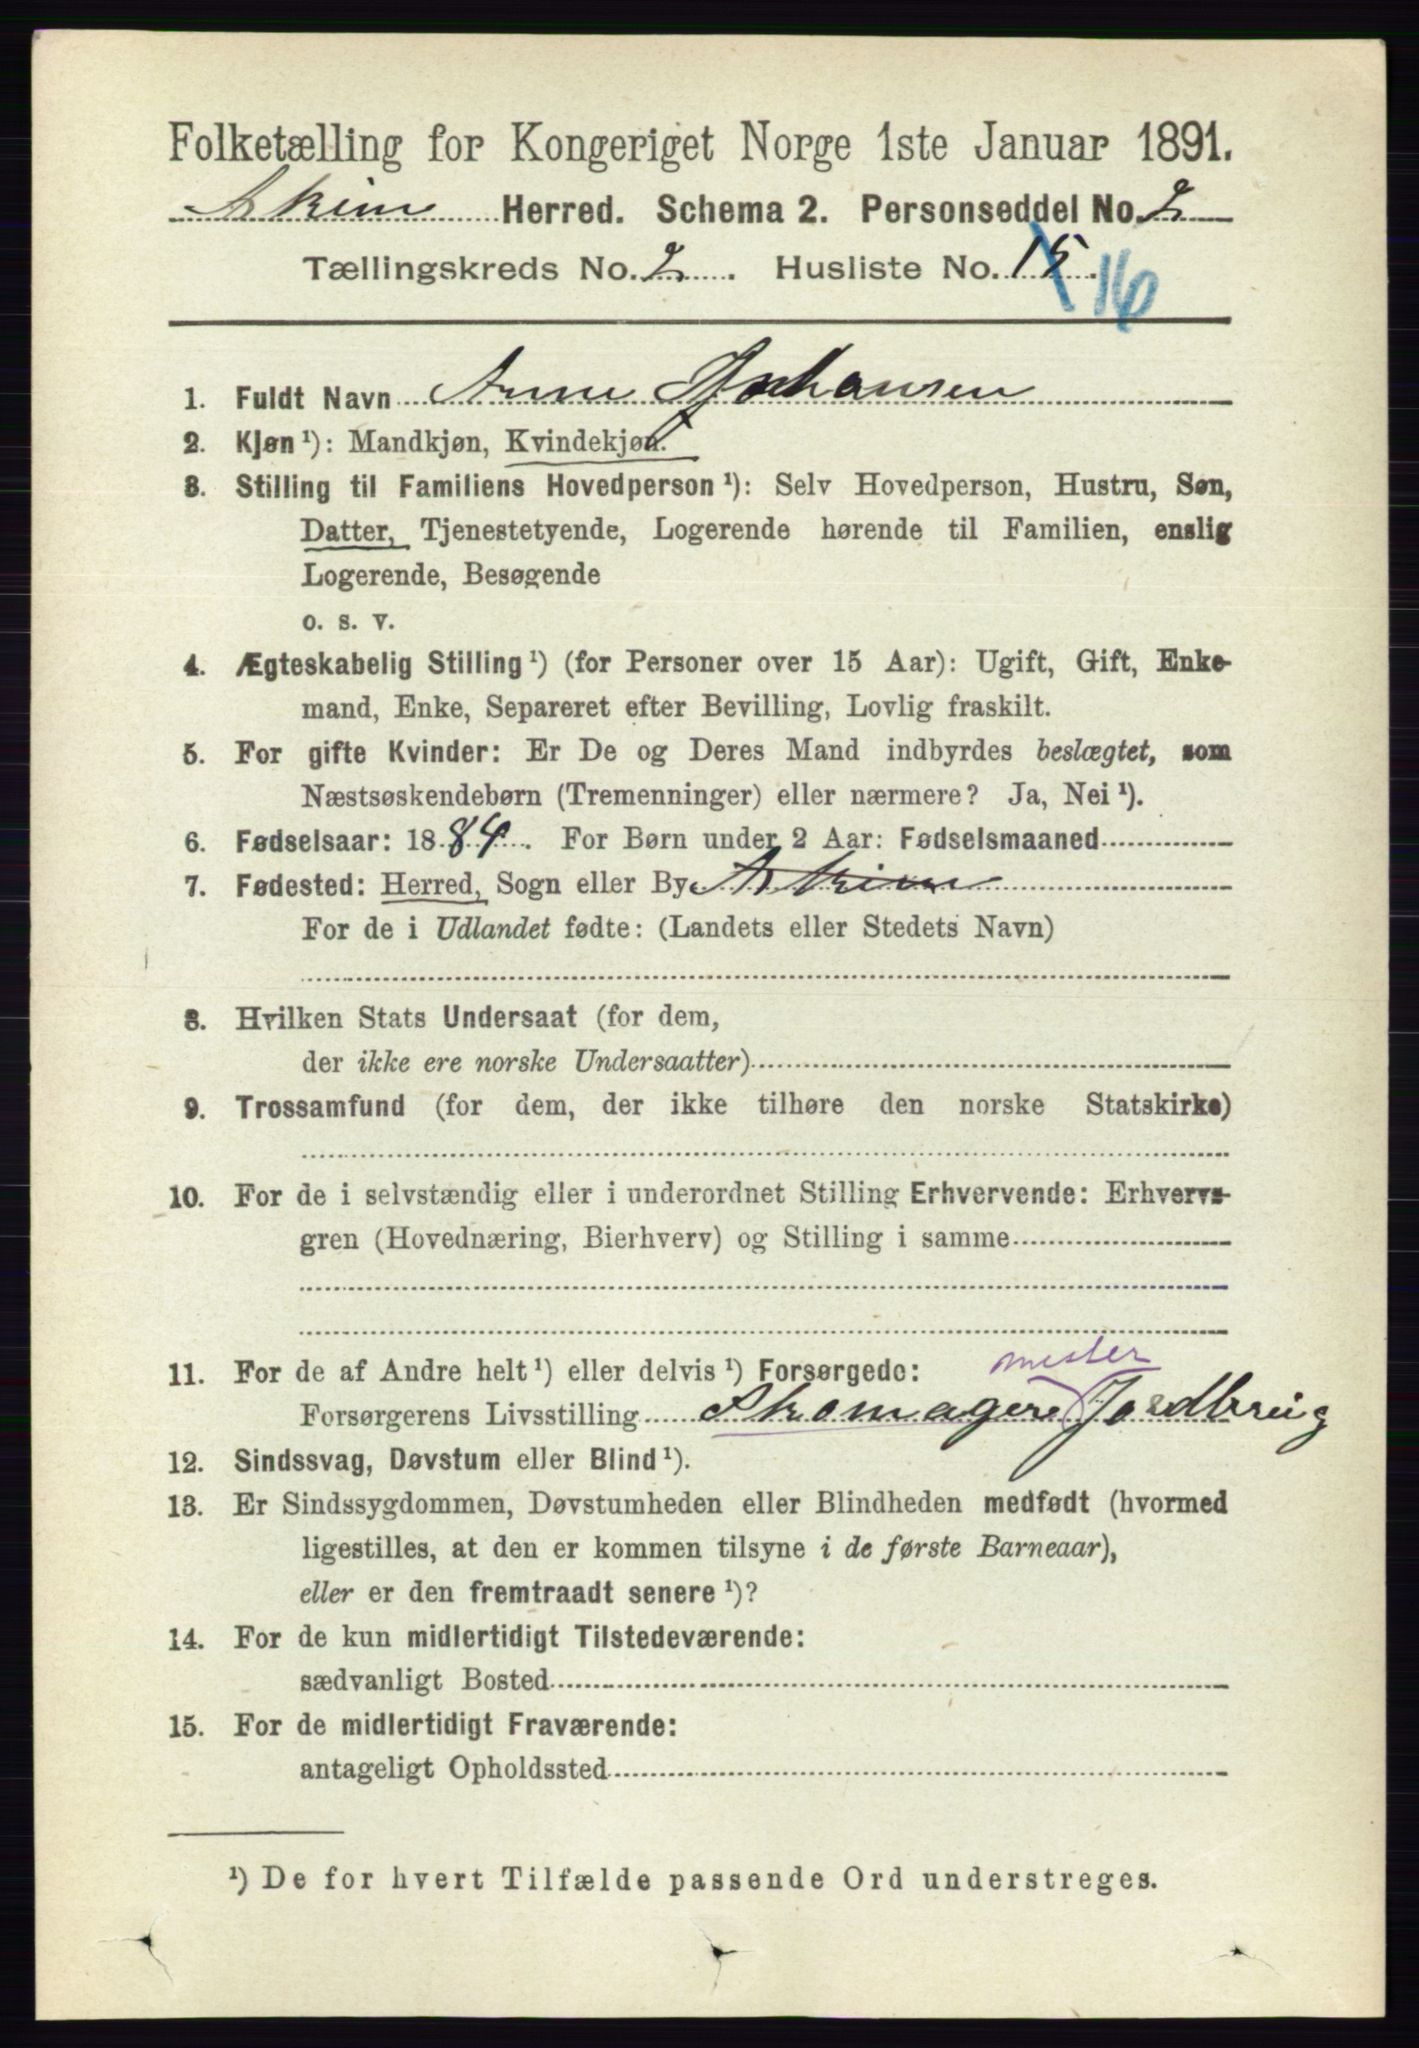 Folketælling for Kongeriget Norge 1ste Januar 1891.
Askim Herred. Schema 2. Personseddel No. 2
Tællingskreds No. 2. Husliste No. 15. 16
1. Fuldt Navn Anne Johansen
2. Kjøn ¹): Mandkjøn, Kvindekjøn.
3. Stilling til Familiens Hovedperson ¹): Selv Hovedperson, Hustru, Søn,
Datter, Tjenestetyende, Logerende hørende til Familien, enslig
Logerende, Besøgende
o. s. v.
4. Ægteskabelig Stilling ¹) (for Personer over 15 Aar): Ugift, Gift, Enke-
mand, Enke, Separeret efter Bevilling, Lovlig fraskilt.
5. For gifte Kvinder: Er De og Deres Mand indbyrdes beslægtet, som
Næstsøskendebørn (Tremenninger) eller nærmere? Ja, Nei ¹).
6. Fødselsaar: 1884. For Børn under 2 Aar: Fødselsmaaned
7. Fødested: Herred, Sogn eller By Askim
For de i Udlandet fødte: (Landets eller Stedets Navn)
8. Hvilken Stats Undersaat (for dem,
der ikke ere norske Undersaatter)
9. Trossamfund (for dem, der ikke tilhøre den norske Statskirke)
10. For de i selvstændig eller i underordnet Stilling Erhvervende: Erhvervs-
gren (Hovednæring, Bierhverv) og Stilling i samme
11. For de af Andre helt ¹) eller delvis ¹) Forsørgede: mester
Forsørgerens Livsstilling Skomager Jordbrug
12. Sindssvag, Døvstum eller Blind ¹).
13. Er Sindssygdommen, Døvstumheden eller Blindheden medfødt (hvormed
ligestilles, at den er kommen tilsyne i de første Barneaar),
eller er den fremtraadt senere ¹)?
14. For de kun midlertidigt Tilstedeværende:
sædvanligt Bosted
15. For de midlertidigt Fraværende:
antageligt Opholdssted
¹) De for hvert Tilfælde passende Ord understreges.